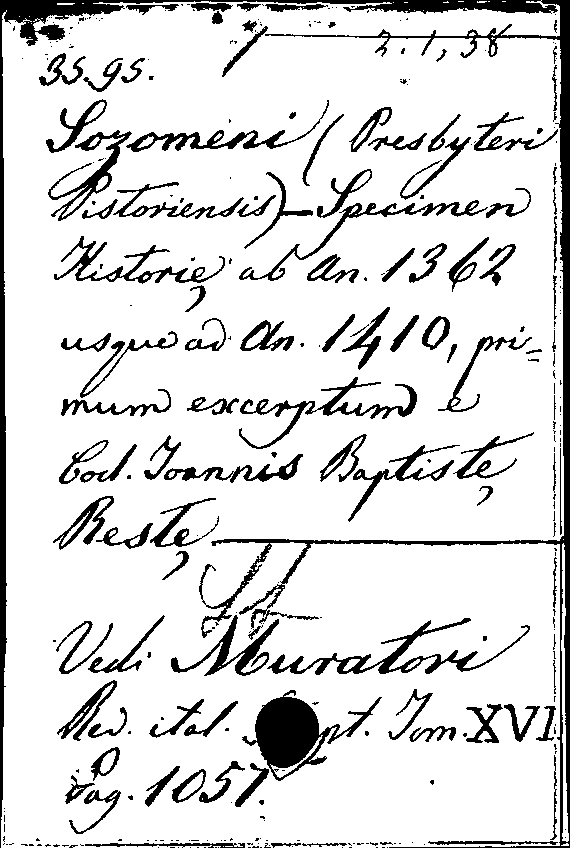 2.1,38
35.95.
Sozomeni (Presbyteri
Pistoriensis) — Specimen
Historię ab An. 1362
usque ad An. 1410, pri=
mum excerptum e
Cod. Joannis Baptistę
Restę
Vedi Muratori
Rer. ital. pt. Tom. XVI.
Pag. 1057.